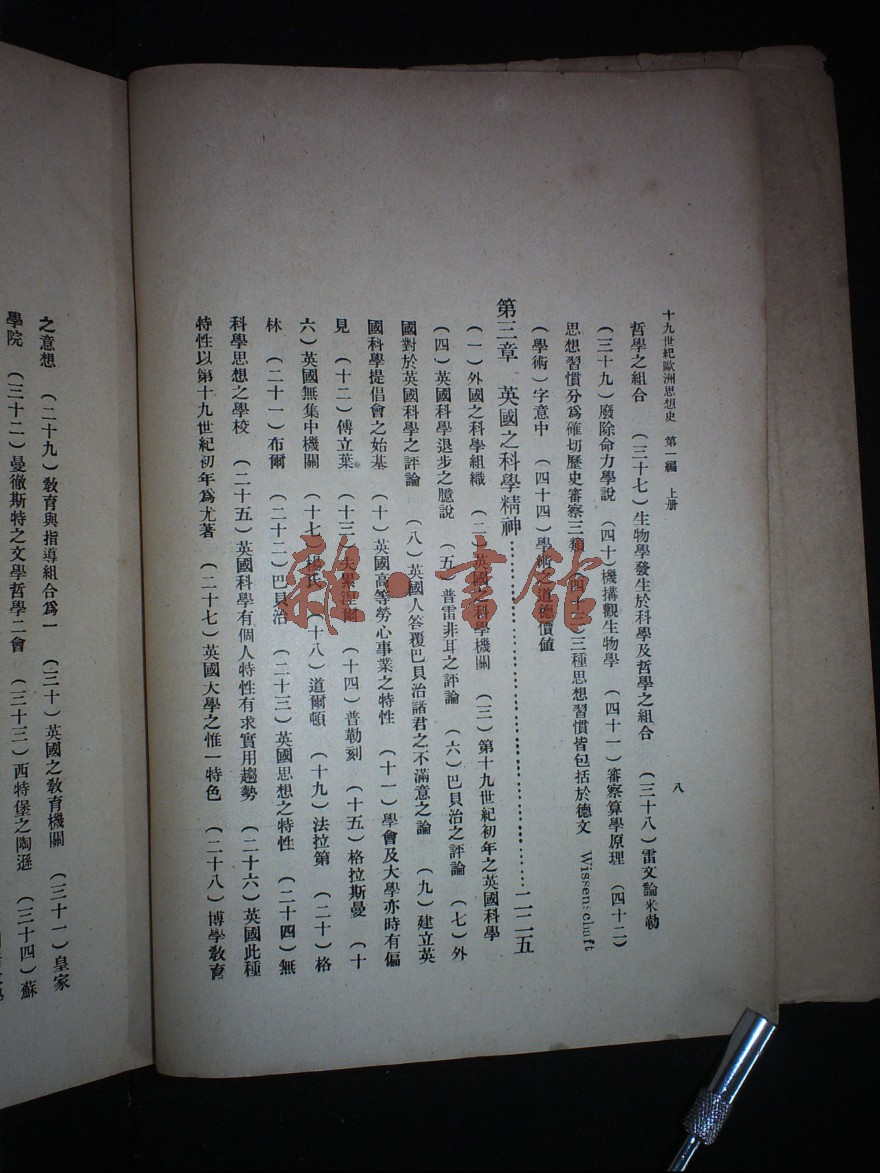 十九世紀歐洲思想史 第一編 上册
八
哲學之組合 (三十七)生物學發生於科學及哲學之組合 (三十八)雷文論米勒
(三十九)廢除命力學說 (四十)機搆觀生物學 (四十一)審察算學原理 (四十二)
思想習慣分爲確切歷史審察三類 (四十三)三種思想習慣皆包括於德文 Wissenschaft
(學術)字意中 (四十四)學術之道德價值
第三章 英國之科學精神…………………………二二五
(一)外國之科學組織 (二)英國之科學機關 (三)第十九世紀初年之英國科學
(四)英國科學退步之臆說 (五)普雷非耳之評論 (六)巴貝治之評論 (七)外
國對於英國科學之評論 (八)英國人答覆巴貝治諸君之不滿意之論 (九)建立英
國科學提倡會之始基 (十)英國高等勞心事業之特性 (十一)學會及大學亦時有偏
見 (十二)傅立葉 (十三)夫累涅爾 (十四)普勒刻 (十五)格拉斯曼 (十
六)英國無集中機關 (十七)楊氏 (十八)道爾頓 (十九)法拉第 (二十)格
林 (二十一)布爾 (二十二)巴貝治 (二十三)英國思想之特性 (二十四)無
科學思想之學校 (二十五)英國科學有個人特性有求實用趨勢 (二十六)英國此種
特性以第十九世紀初年爲尤著 (二十七)英國大學之惟一特色 (二十八)博學教育
之意想 (二十九)教育與指導組合爲一 (三十)英國之教育機關 (三十一)皇家
學院 (三十二)曼徹斯特之文學哲學二會 (三十三)西特堡之陶遜 (三十四)蘇
雜·書館